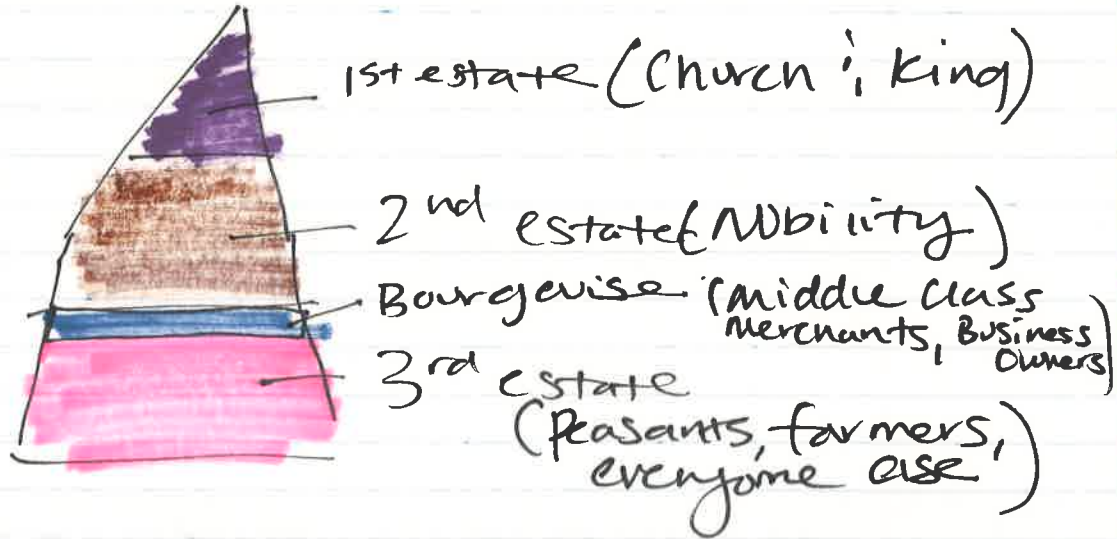 1st estate (Church & King)
2nd estate (Nobility)
Bourgeuise (Middle Class
Merchants, Business
Owners)
3rd estate
(Peasants, farmers,
everyone else)